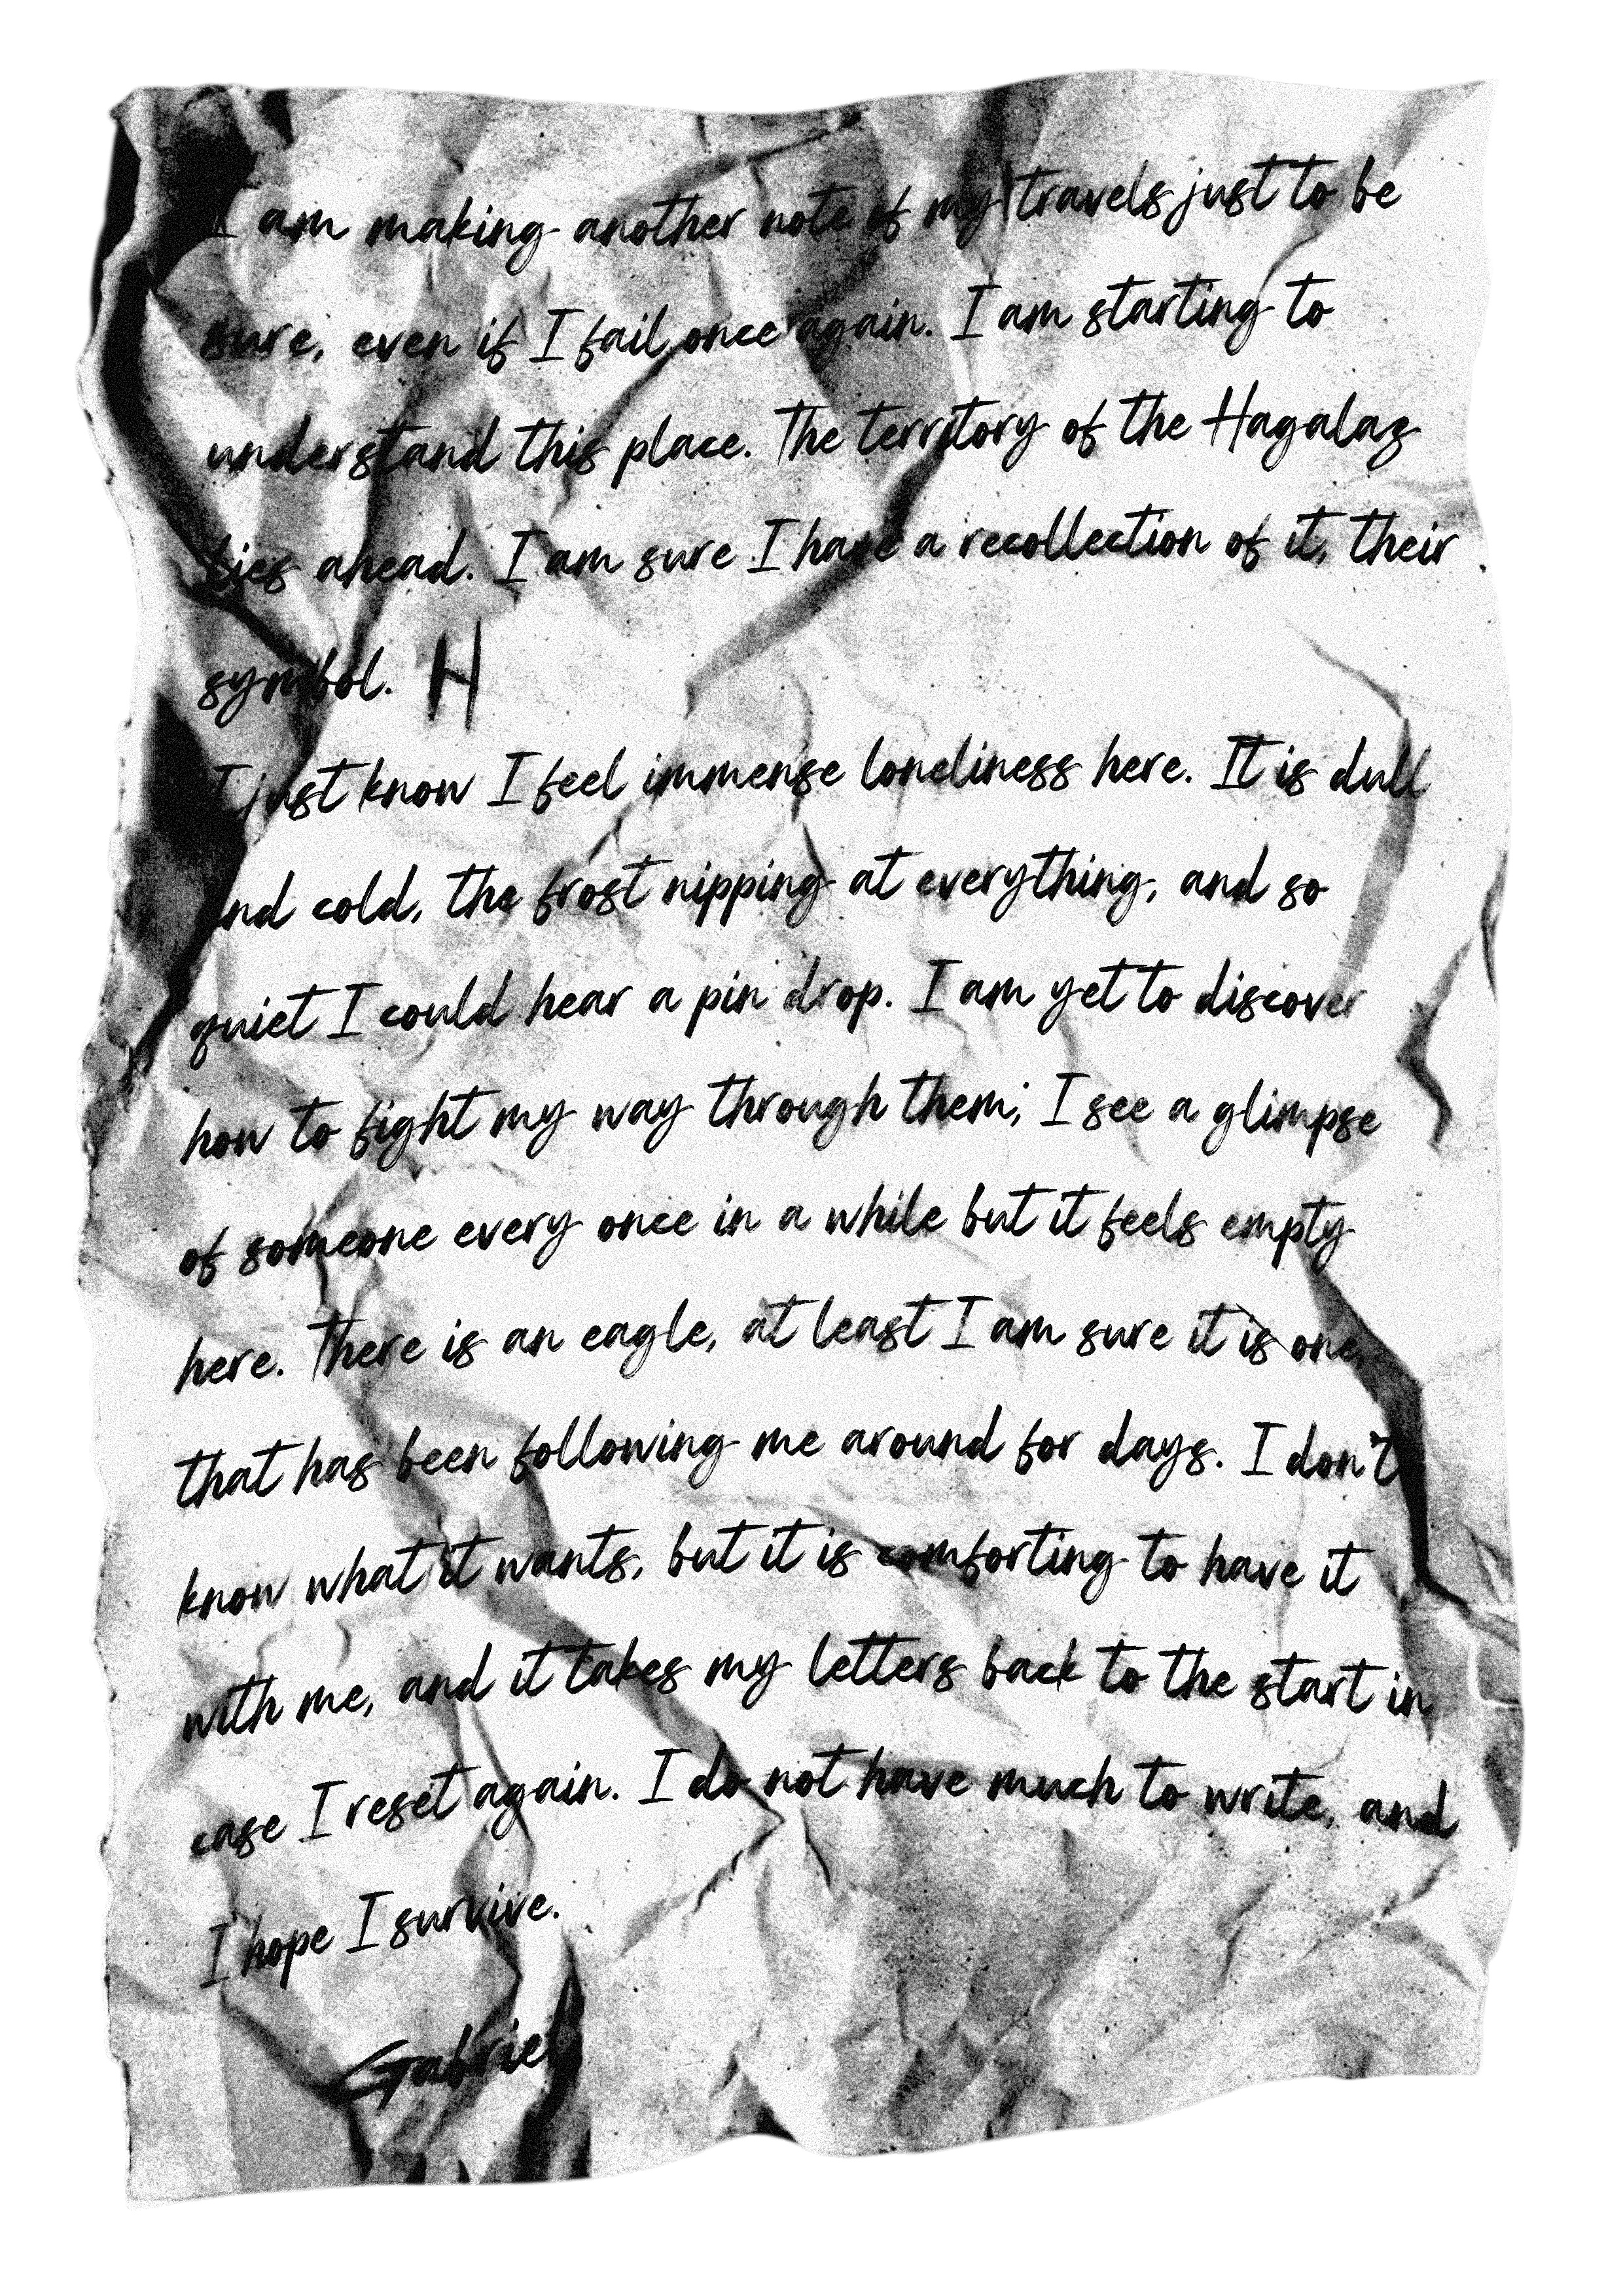 I am making another note of my travels just to be
sure, even if I fail once again. I am starting to
understand this place. The territory of the Hagalaz
lies ahead. I am sure I have a recollection of it, their
symbol. ᚺ
I just know I feel immense loneliness here. It is dull
and cold, the frost nipping at everything, and so
quiet I could hear a pin drop. I am yet to discover
how to fight my way through them; I see a glimpse
of someone every once in a while but it feels empty
here. There is an eagle, at least I am sure it is one,
that has been following me around for days. I don't
know what it wants, but it is comforting to have it
with me, and it takes my letters back to the start in
case I reset again. I do not have much to write, and
I hope I survive.
Gabriel